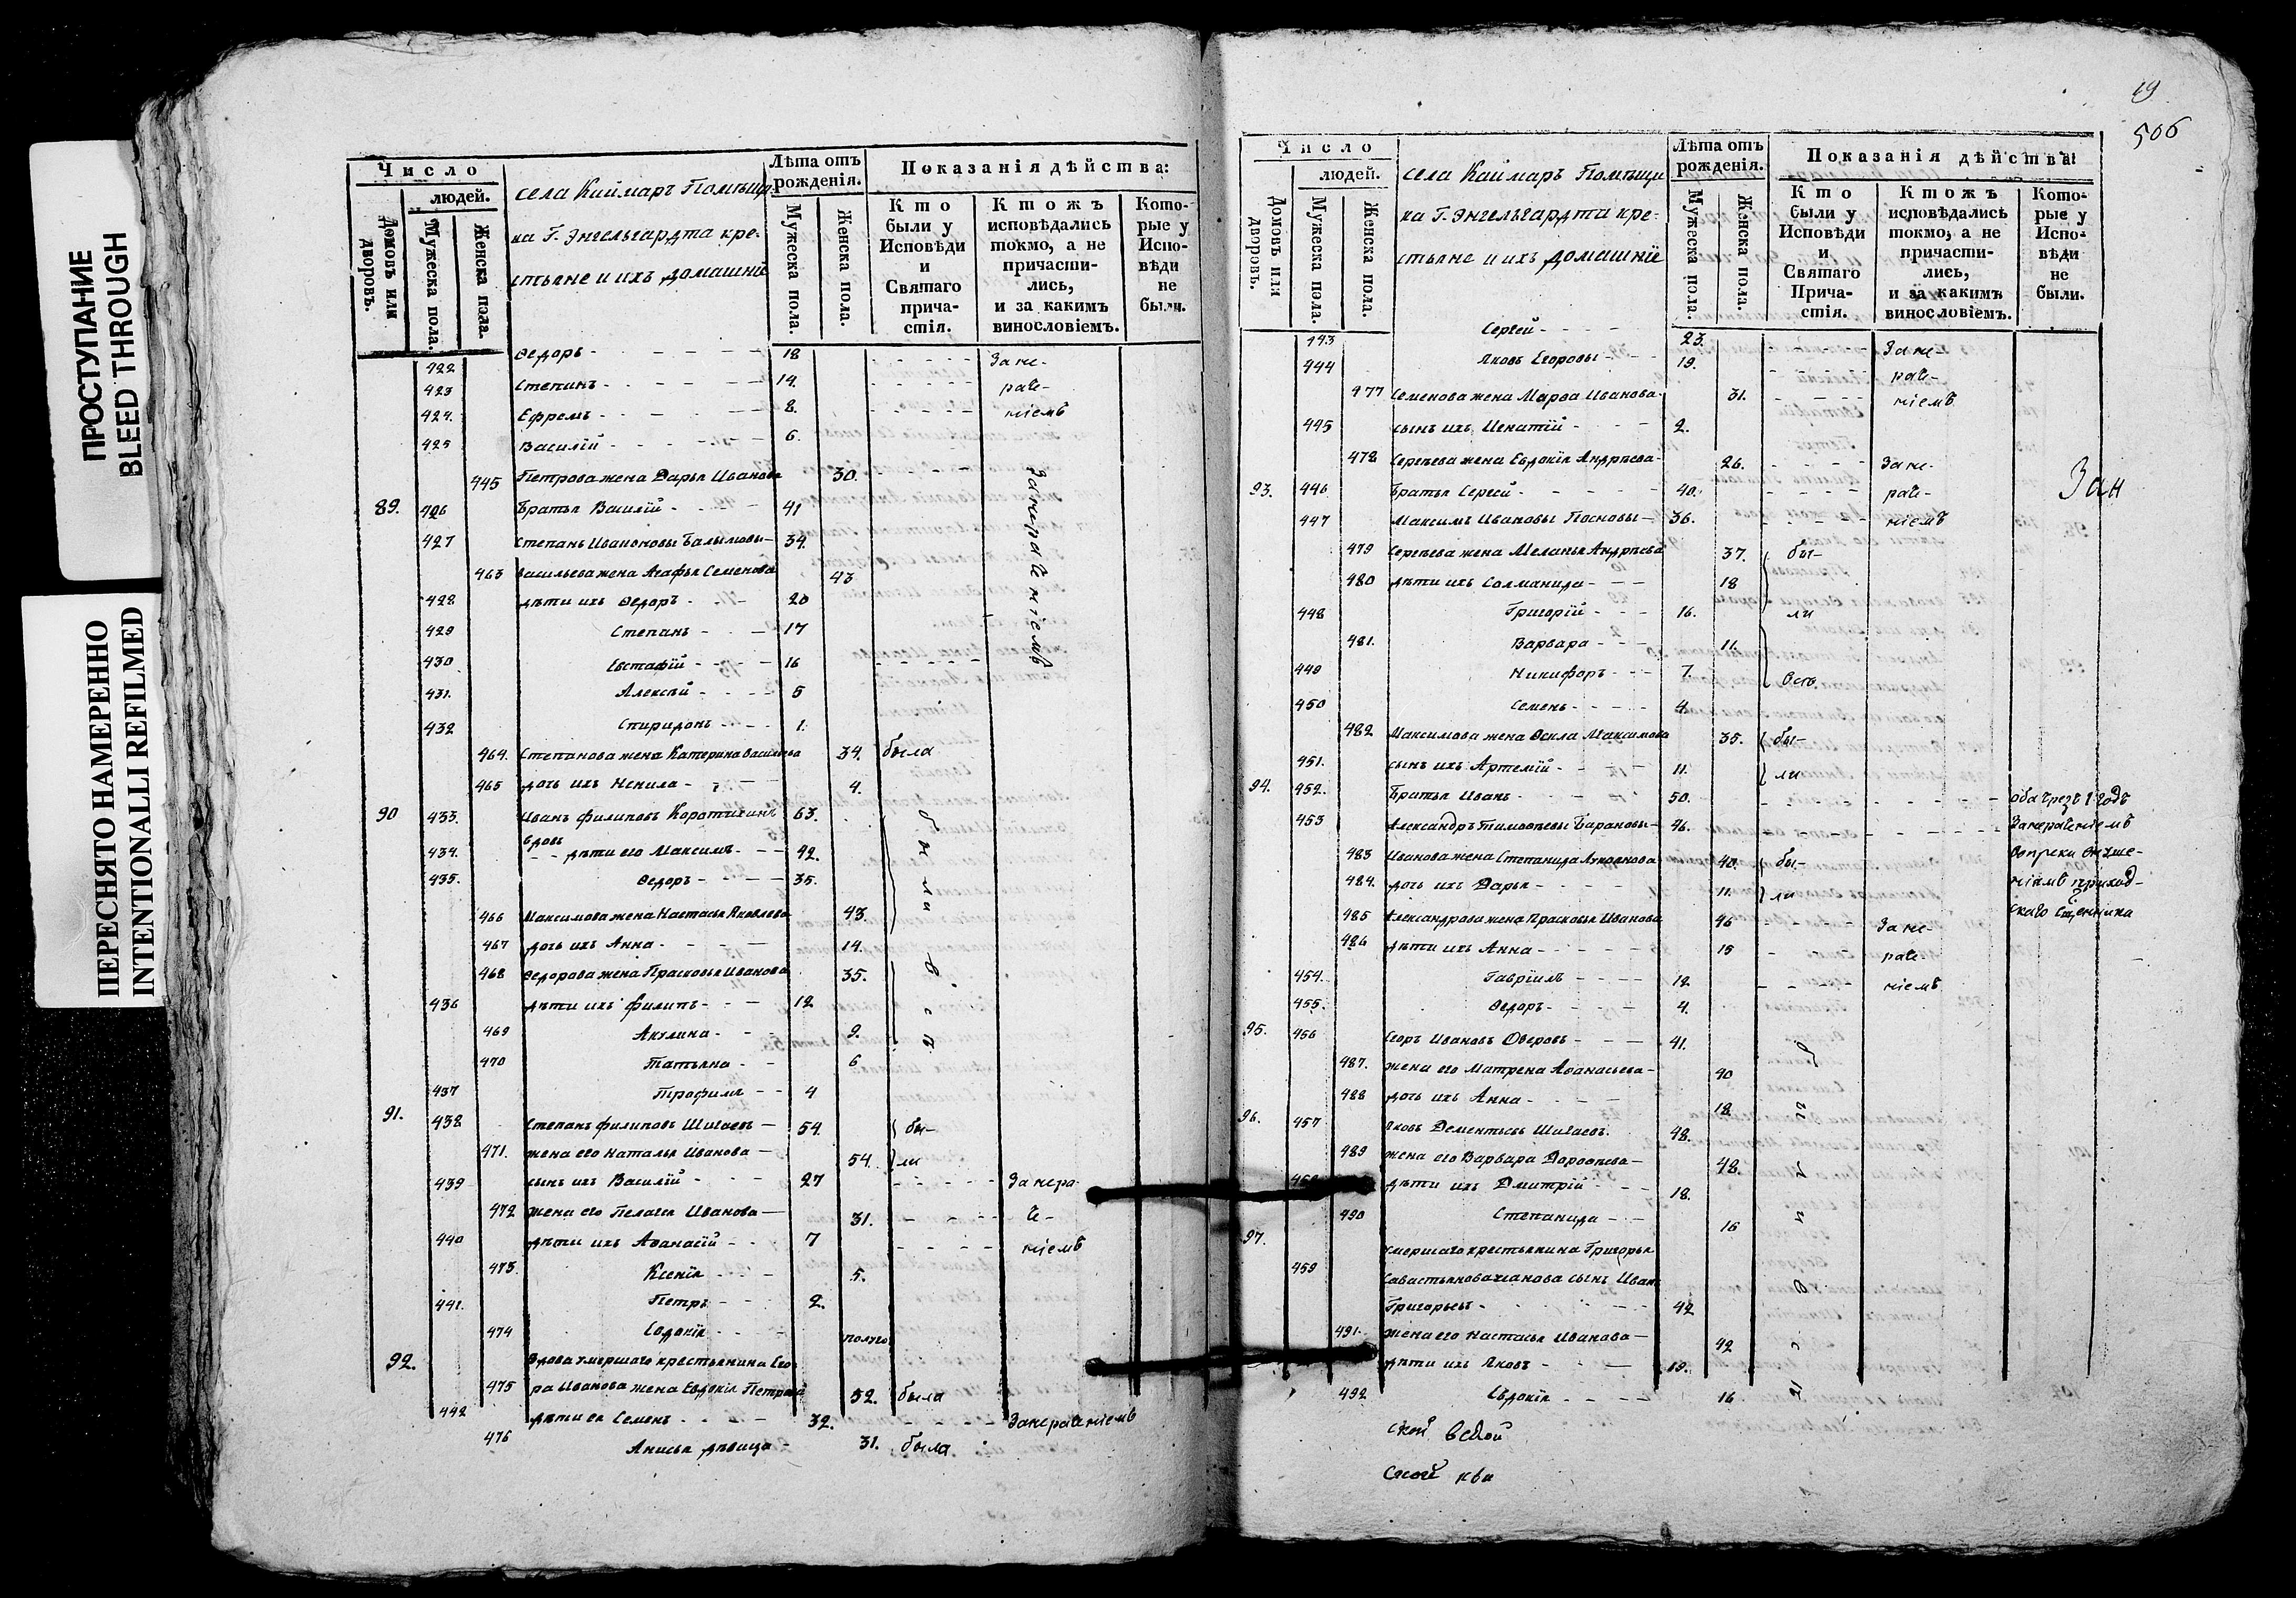 ПРОСТУПАНИЕ
BLEED THROUGH
ПЕРЕСНЯТО НАМЕРЕННО
INTENTIONALLI REFILMED
Число
людей.
Домовъ или дворовъ.
Мужеска пола.
Женска пола.
села Каймаръ Помѣщи-
ка Г. Энгельгардта кре-
стьяне и ихъ домашніе
Лѣта отъ рожденія.
Мужеска пола.
Женска пола.
Показанія дѣйства:
Кто были у Исповѣди и Святаго причастія.
Ктожъ исповѣдались токмо, а не причастились, и за какимъ винословіемъ.
Которые у Исповѣди не были.
422 Ѳедоръ 18 За не-
423 Степанъ 14. раче-
424. Ефремъ 8. ніемъ
425 Василій 6.
445 Петрова жена Дарья Иванова 30.
89. 426 Братья Василій 41 За нераченіемъ
427 Степанъ Ивановы Балымовы 34.
463 Васильева жена Агафья Семенова 43
428 дѣти ихъ Ѳедоръ 20
429 Степанъ 17
430 Евстафій 16
431. Алексѣй 5
432 Спиридонъ 1.
464. Степанова жена Катерина Васильева 34. была
465 дочь ихъ Ненила 4.
90 433. Иванъ Филиповъ Коротихинъ 63. были
вдовъ
434. дѣти его Максимъ 42.
435. Ѳедоръ 35.
466 Максимова жена Настасья Яковлева 43.
467 дочь ихъ Анна 14.
468 Ѳедорова жена Прасковья Иванова 35. всѣ
436 дѣти ихъ Филипъ 12
469 Акулина 9.
470 Татьяна 6
437 Трофимъ 4
91. 438 Степанъ Филиповъ Шигаевъ 54. бы-
471. жена его Наталья Иванова 54. ли
439 сынъ ихъ Василій 27 За нера-
472 жена его Пелагея Иванова 31. че-
440 дѣти ихъ Аѳанасій 7 ніемъ
473. Ксенія 5.
441. Петръ 2.
474 Евдокія полуго
92. Вдова умершаго крестьянина Его-
475 ра Иванова жена Евдокія Петрова 52. была
442 дѣти ея Семенъ 32. За нераченіемъ
476 Анисья дѣвица 31. была
19
506
Число
людей.
Домовъ или дворовъ.
Мужеска пола.
Женска пола.
села Каймаръ Помѣщи-
ка Г. Энгельгардта кре-
стьяне и ихъ домашніе
Лѣта отъ рожденія.
Мужеска пола.
Женска пола.
Показанія дѣйства:
Кто были у Исповѣди и Святаго Причастія.
Ктожъ исповѣдались токмо, а не причастились, и за какимъ винословіемъ.
Которые у Исповѣди не были.
443 Сергей 23. За не-
444 Яковъ Егоровы 19. раче-
477 Семенова жена Марѳа Иванова 31. ніемъ
445 сынъ ихъ Игнатій 2.
478 Сергѣева жена Евдокія Андрѣева 26. За не-
93. 446 Братья Сергей 40. раче- Зан
447 Максимъ Ивановы Посновы 36. ніемъ
479 Сергѣева жена Меланья Андрѣева 37. бы-
480 дѣти ихъ Соломанида 18
448 Григорій 16. ли
481. Варвара 11.
449 Никифоръ 7. всѣ
450 Семенъ 4.
482 Максимова жена Ѳекла Максимова 35. бы-
451. сынъ ихъ Артемій 11. ли
94. 452. Братья Иванъ 50. оба чрезъ 1 годъ
453 Александръ Тимоѳеевы Барановы 46. За нераченіемъ
483 Иванова жена Степанида 40. бы- вопреки внуше-
484. дочь ихъ Дарья 11. ли ніямъ приход-
485 Александрова жена Прасковья Иванова 46 За не- скаго Сщенника
486 дѣти ихъ Анна 15 раче-
454. Гавріилъ 12 ніемъ
455. Ѳедоръ 4.
95. 456 Егоръ Ивановъ Оверовъ 41. бы
487. жена его Матрена Аѳанасьева 40
488 дочь ихъ Анна 18
96. 457 Яковъ Дементьевъ Шигаевъ 48.
489 жена его Варвара Дороѳѣева 48. ли
458 дѣти ихъ Дмитрій 18.
490 Степанида 16
97. умершаго крестьянина Григорья
459 сынъ Иванъ
Григорьевъ 42 в
491. жена его Настасья Иванова 42 с
дѣти ихъ Яковъ 19.
492 Евдокія 16 ѣ